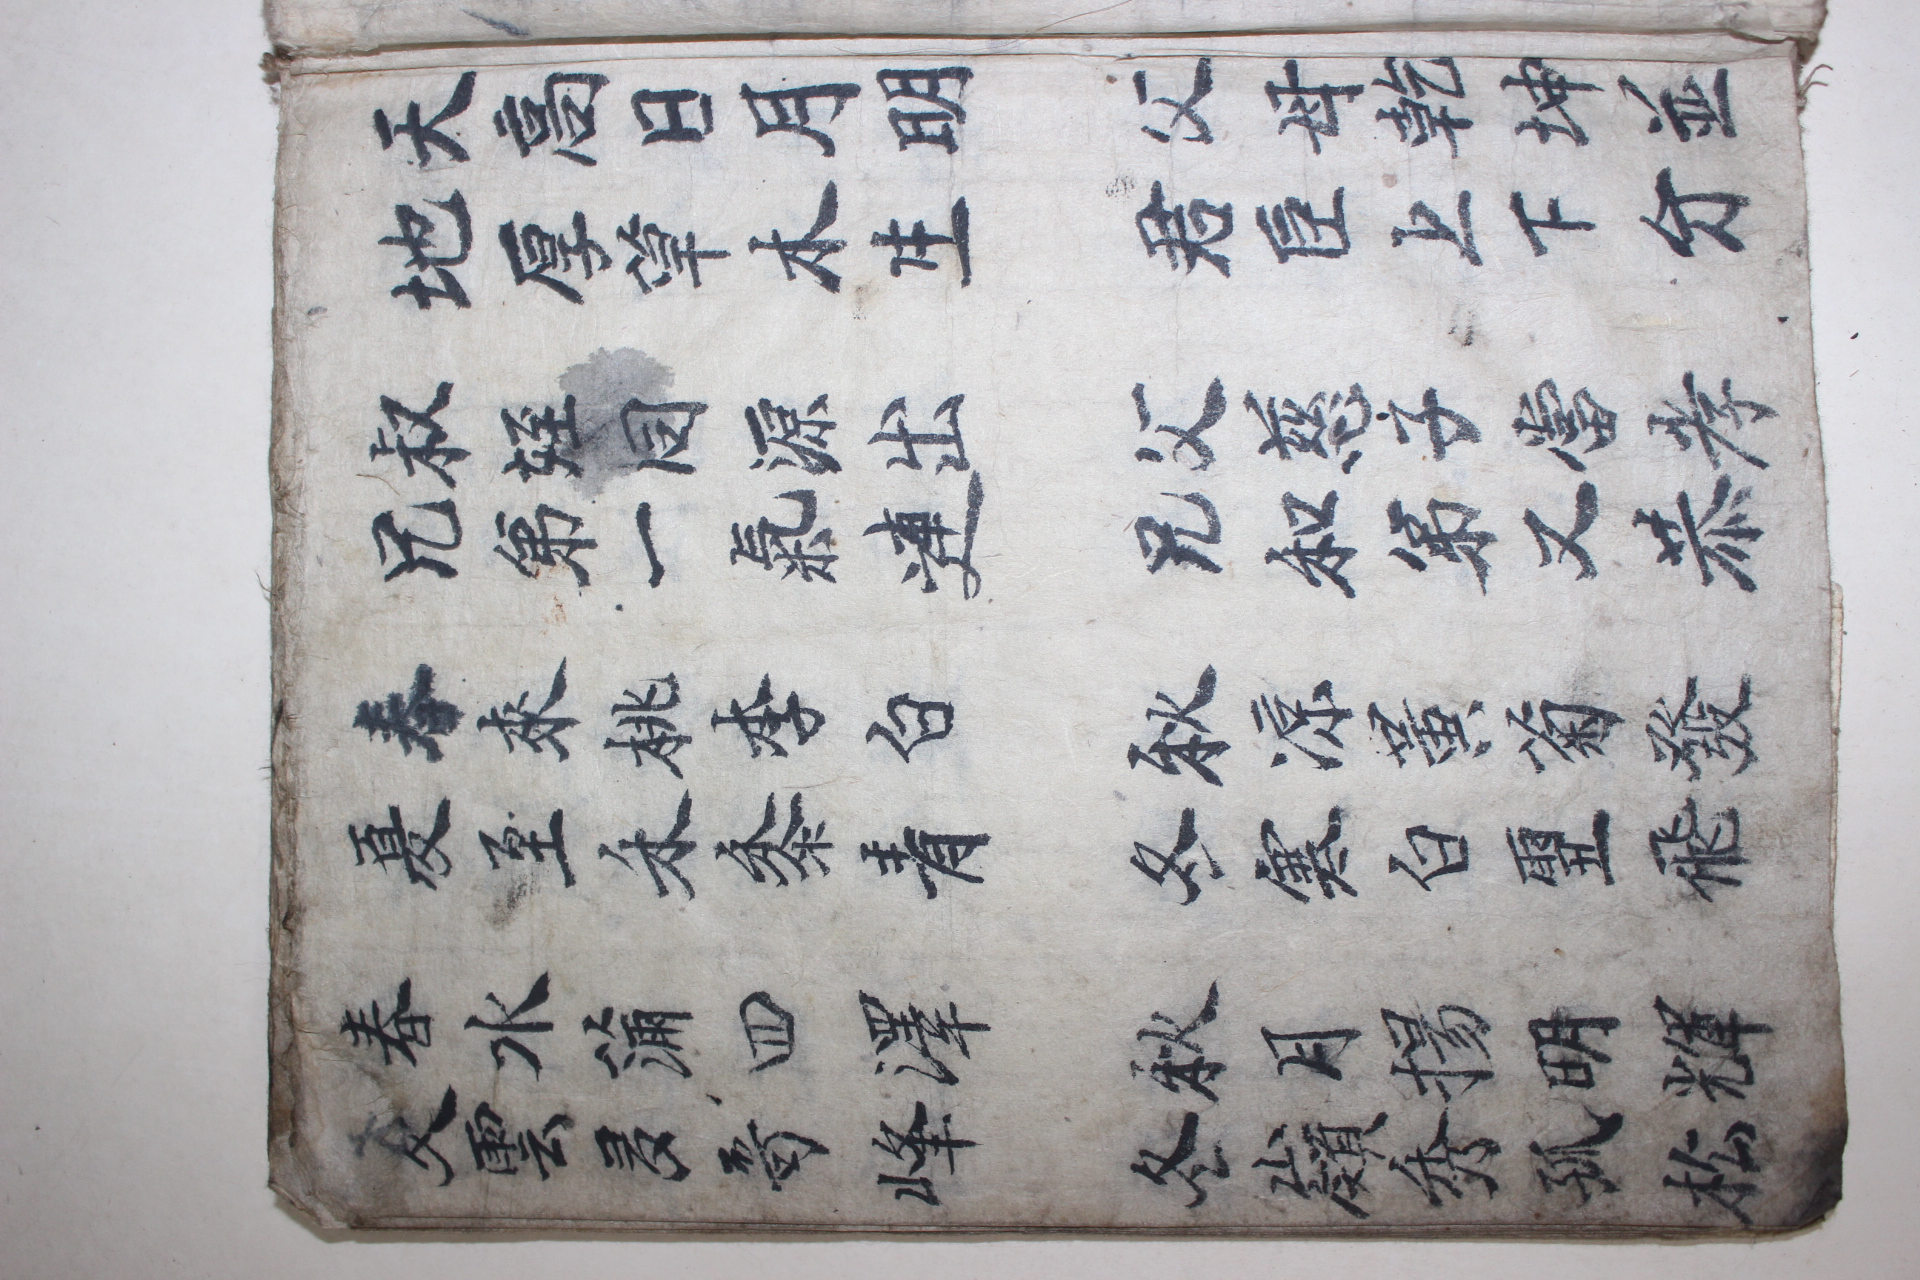 天高日月明 父母乾坤並
地厚草木生 君臣上下分
叔姪同源出 父慈子當孝
兄弟一氣連 兄和弟又恭
春來桃李白 秋凉黃菊發
夏至青 冬寒白雪飛
春水滿四澤 秋月揚明輝
夏雲多奇峰 冬嶺秀孤松